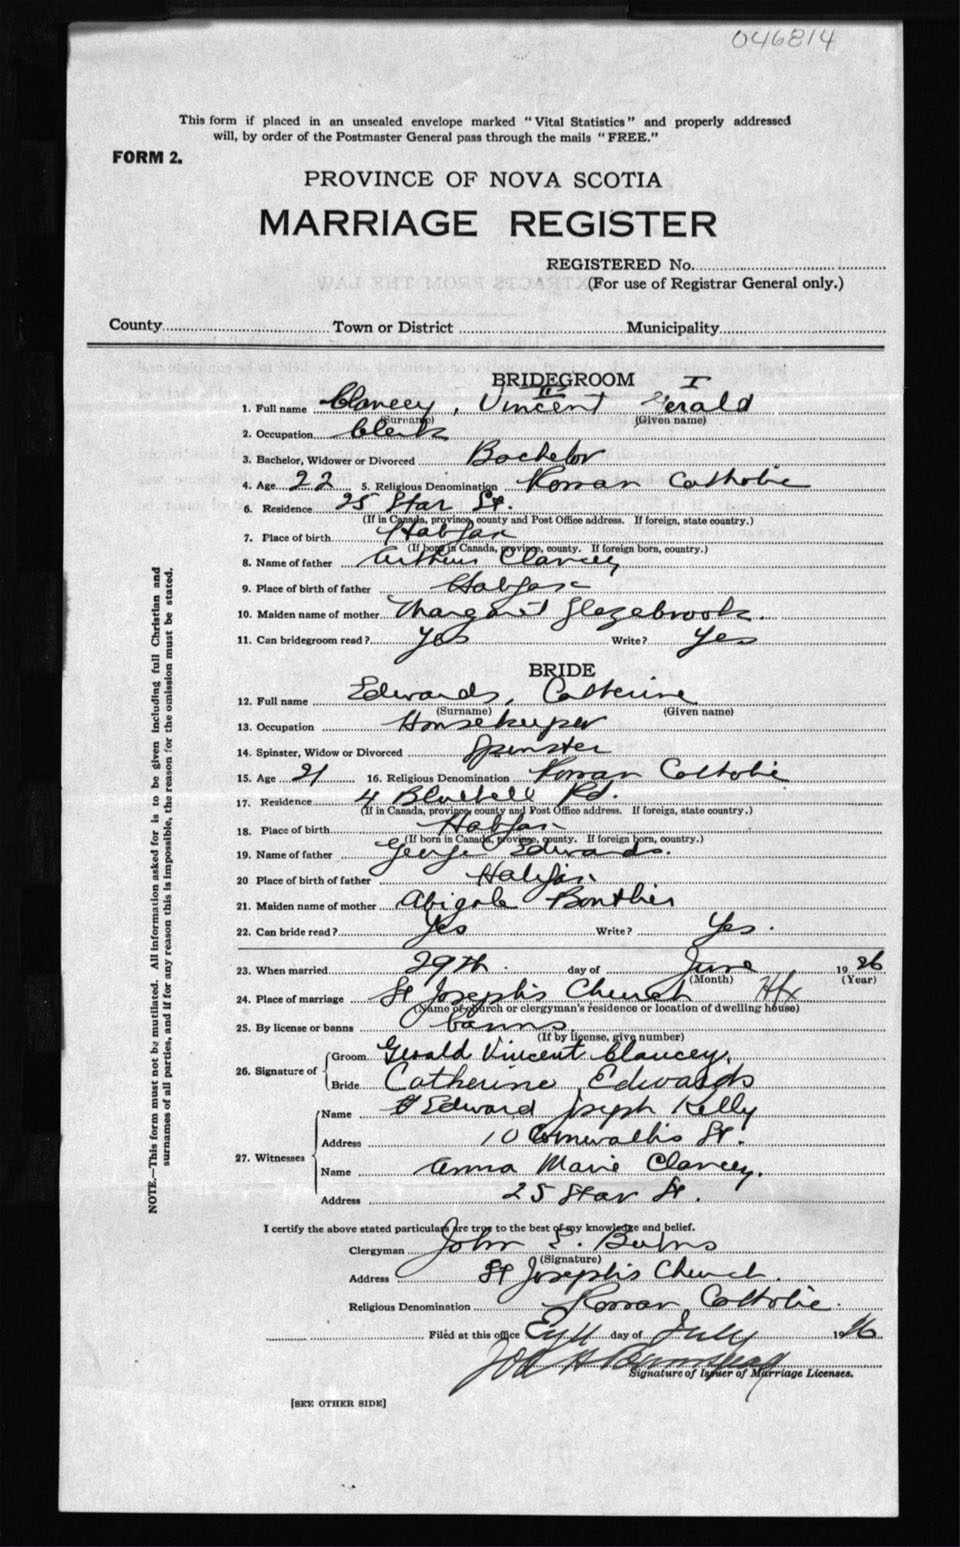 046814
This form if placed in an unsealed envelope marked "Vital Statistics" and properly addressed
will, by order of the Postmaster General pass through the mails "FREE."
FORM 2.
PROVINCE OF NOVA SCOTIA
MARRIAGE REGISTER
REGISTERED No.
(For use of Registrar General only.)
County Town or District Municipality
BRIDEGROOM I
II
1. Full name Clancey, Vincent Gerald
(Surname) (Given name)
2. Occupation Clerk
3. Bachelor, Widower or Divorced Bachelor
4. Age 22 5. Religious Denomination Roman Catholic
6. Residence 25 Star St.
(If in Canada, province, county and Post Office address. If foreign, state country.)
7. Place of birth Halifax
(If born in Canada, province, county. If foreign born, country.)
8. Name of father Arthur Clancey
9. Place of birth of father Halifax
10. Maiden name of mother Margaret Glazebrook.
11. Can bridegroom read? Yes Write? Yes
BRIDE
12. Full name Edwards, Catherine
(Surname) (Given name)
13. Occupation Housekeeper
14. Spinster, Widow or Divorced Spinster
15. Age 21 16. Religious Denomination Roman Catholic
17. Residence 4 Bluebell Rd.
(If in Canada, province, county and Post Office address. If foreign, state country.)
18. Place of birth Halifax
(If born in Canada, province, county. If foreign born, country.)
19. Name of father George Edwards.
20 Place of birth of father Halifax
21. Maiden name of mother Abigale
22. Can bride read? Yes Write? Yes.
23. When married 29th day of June 1926
(Month) (Year)
24. Place of marriage St Joseph's Church Hfx
(Name of church or clergyman's residence or location of dwelling house)
25. By license or banns banns
(If by license, give number)
26. Signature of Groom Gerald Vincent Clancey.
Bride Catherine Edwards
27. Witnesses Name Edward Joseph Kelly
Address 10 Cornwallis St.
Name Anna Marie Clancey.
Address 25 Star St.
I certify the above stated particulars are true to the best of my knowledge and belief.
Clergyman John E. Burns
(Signature)
Address St Joseph's Church.
Religious Denomination Roman Catholic.
Filed at this office day of July 1926
Signature of Issuer of Marriage Licenses.
[SEE OTHER SIDE]
NOTE.—This form must not be mutilated. All information asked for is to be given including full Christian and
surnames of all parties, and if for any reason this is impossible, the reason for the omission must be stated.